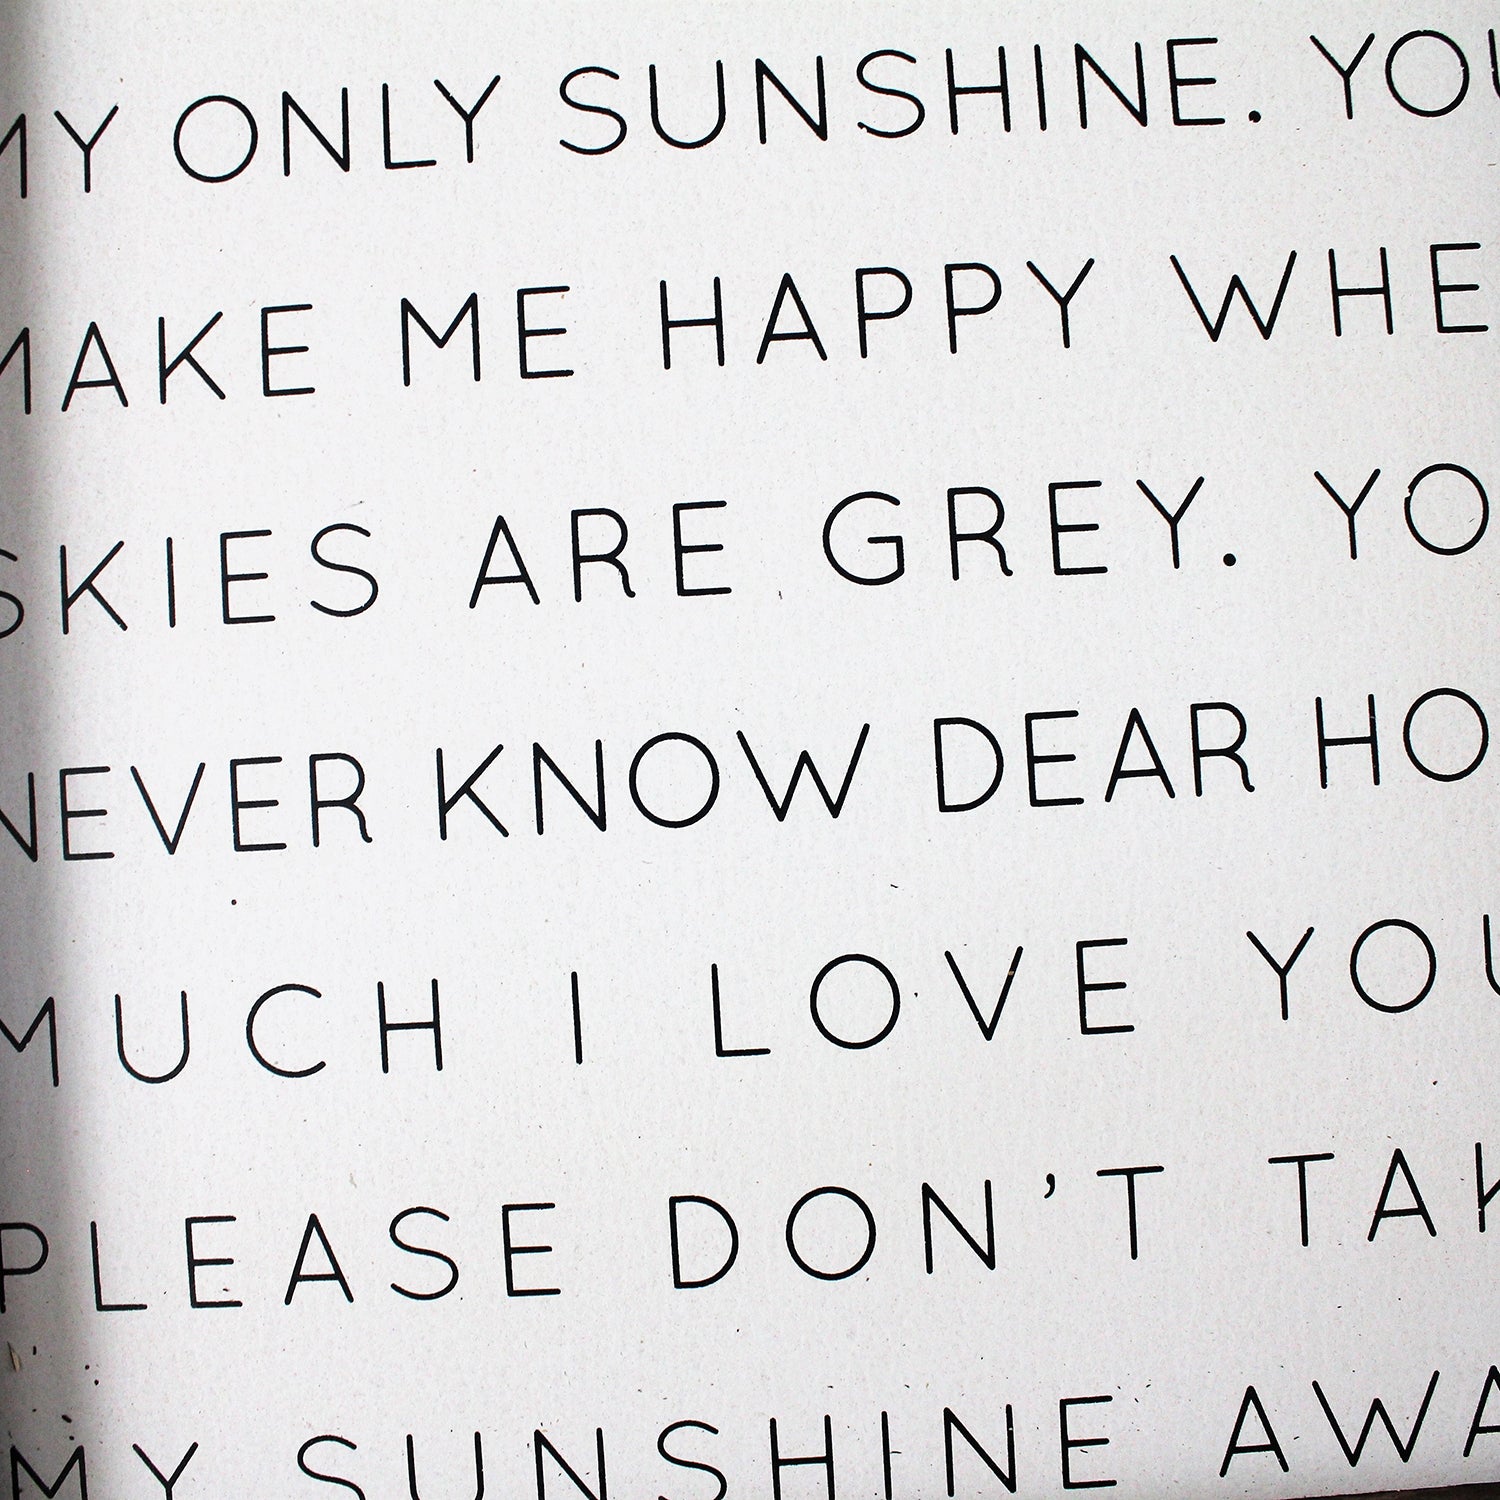 MY ONLY SUNSHINE. YOU
MAKE ME HAPPY WHE
SKIES ARE GREY. YO
NEVER KNOW DEAR HO
MUCH I LOVE YOU
PLEASE DON'T TAK
MY SUNSHINE AWA